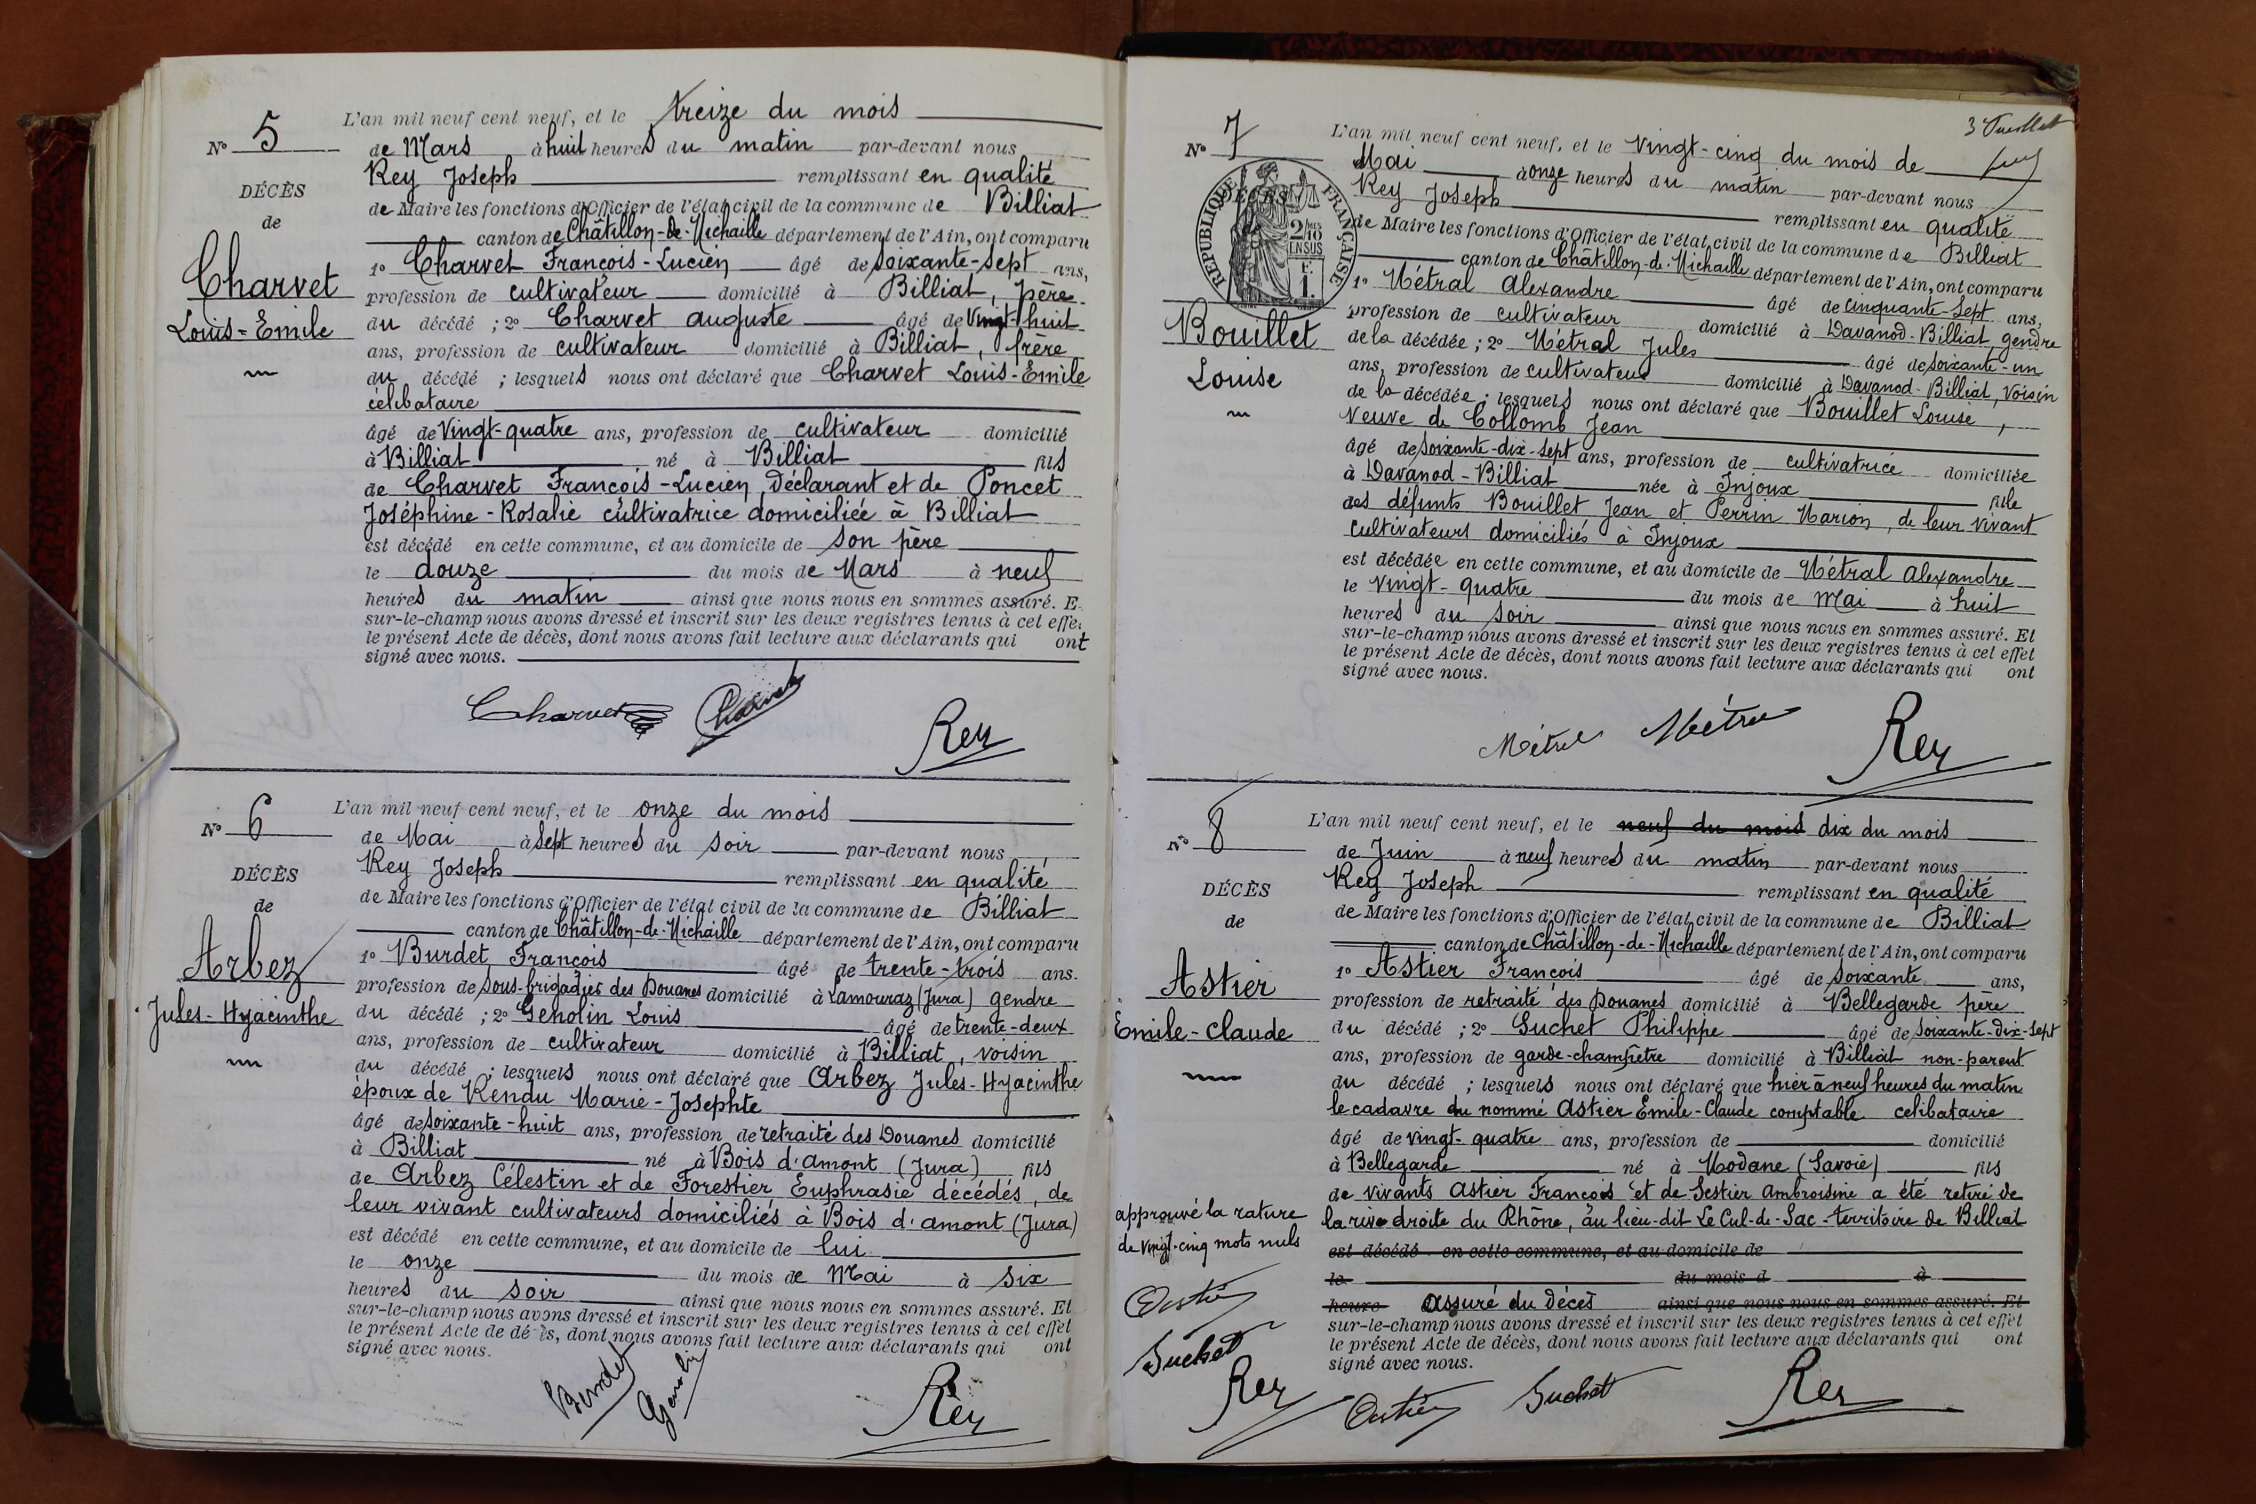 N° 5
DÉCÈS
de
Charvet
Louis-Emile
L'an mil neuf cent neuf, et le treize du mois
de Mars à huit heures du matin par-devant nous
Rey Joseph remplissant en qualité
de Maire les fonctions d'Officier de l'état civil de la commune de Billiat
canton de Châtillon-de-Michaille département de l'Ain, ont comparu
1° Charvet François-Lucien âgé de soixante-sept ans,
profession de cultivateur domicilié à Billiat, père
du décédé ; 2° Charvet Auguste âgé de vingt-huit
ans, profession de cultivateur domicilié à Billiat, frère
du décédé ; lesquels nous ont déclaré que Charvet Louis-Emile
célibataire
âgé de vingt-quatre ans, profession de cultivateur domicilié
à Billiat né à Billiat fils
de Charvet François-Lucien, déclarant et de Poncet
Joséphine-Rosalie cultivatrice domiciliée à Billiat
est décédé en cette commune, et au domicile de son père
le douze du mois de Mars à neuf
heures du matin ainsi que nous nous en sommes assuré. E
sur-le-champ nous avons dressé et inscrit sur les deux registres tenus à cet effe
le présent Acte de décès, dont nous avons fait lecture aux déclarants qui ont
signé avec nous.
Charvet Charvet
Rey
N° 6
DÉCÈS
de
Arbez
Jules-Hyacinthe
L'an mil neuf cent neuf, et le onze du mois
de Mai à sept heures du soir par-devant nous
Rey Joseph remplissant en qualité
de Maire les fonctions d'Officier de l'état civil de la commune de Billiat
canton de Châtillon-de-Michaille département de l'Ain, ont comparu
1° Burdet François âgé de trente-trois ans.
profession de sous-brigadier des Douanes domicilié à Lamouraz (Jura) gendre
du décédé ; 2° Genolin Louis âgé de trente-deux
ans, profession de cultivateur domicilié à Billiat, voisin
du décédé ; lesquels nous ont déclaré que Arbez Jules-Hyacinthe
époux de Rendu Marie-Josephte
âgé de soixante-huit ans, profession de retraité des Douanes domicilié
à Billiat né à Bois d'amont (Jura) fils
de Arbez Célestin et de Forestier Euphrasie décédés, de
leur vivant cultivateurs domiciliés à Bois d'amont (Jura)
est décédé en cette commune, et au domicile de lui
le onze du mois de Mai à six
heures du soir ainsi que nous nous en sommes assuré. Et
sur-le-champ nous avons dressé et inscrit sur les deux registres tenus à cet effet
le présent Acte de décès, dont nous avons fait lecture aux déclarants qui ont
signé avec nous.
Burdet Genolin
Rey
3e Feuillet
N° 7
DÉCÈS
RÉPUBLIQUE FRANÇAISE
2/10
EN SUS
1F.
Bouillet
Louise
L'an mil neuf cent neuf, et le vingt-cinq du mois de
Mai à onze heures du matin par-devant nous
Rey Joseph remplissant en qualité
de Maire les fonctions d'Officier de l'état civil de la commune de Billiat
canton de Châtillon-de-Michaille département de l'Ain, ont comparu
1° Métral Alexandre âgé de cinquante-sept ans,
profession de cultivateur domicilié à Davanod-Billiat, gendre
de la décédée ; 2° Métral Jules âgé de soixante-un
ans, profession de cultivateur domicilié à Davanod-Billiat, voisin
de la décédée ; lesquels nous ont déclaré que Bouillet Louise,
veuve de Collomb Jean
âgé de soixante-dix-sept ans, profession de cultivatrice domiciliée
à Davanod-Billiat née à Injoux fille
des défunts Bouillet Jean et Perrin Marion, de leur vivant
cultivateurs domiciliés à Injoux
est décédée en cette commune, et au domicile de Métral Alexandre
le vingt-quatre du mois de Mai à huit
heures du soir ainsi que nous nous en sommes assuré. Et
sur-le-champ nous avons dressé et inscrit sur les deux registres tenus à cet effet
le présent Acte de décès, dont nous avons fait lecture aux déclarants qui ont
signé avec nous.
Métral Métral
Rey
N° 8
DÉCÈS
de
Astier
Emile-Claude
L'an mil neuf cent neuf, et le neuf du mois dix du mois
de Juin à neuf heures du matin par-devant nous
Rey Joseph remplissant en qualité
de Maire les fonctions d'Officier de l'état civil de la commune de Billiat
canton de Châtillon-de-Michaille département de l'Ain, ont comparu
1° Astier François âgé de soixante ans,
profession de retraité des Douanes domicilié à Bellegarde père
du décédé ; 2° Suchet Philippe âgé de soixante-dix-sept
ans, profession de garde-champêtre domicilié à Billiat non-parent
du décédé ; lesquels nous ont déclaré que hier à neuf heures du matin
le cadavre du nommé Astier Emile-Claude comptable célibataire
âgé de vingt-quatre ans, profession de domicilié
à Bellegarde né à Modane (Savoie) fils
de vivants Astier François et de Sestier Ambroisine a été retiré de
la rive droite du Rhône, au lieu-dit Le Cul-de-Sac-territoire de Billiat
est décédé en cette commune, et au domicile de
le du mois d à
heure assuré du décès ainsi que nous nous en sommes assuré. Et
sur-le-champ nous avons dressé et inscrit sur les deux registres tenus à cet effet
le présent Acte de décès, dont nous avons fait lecture aux déclarants qui ont
signé avec nous.
approuvé la rature
de vingt-cinq mots nuls
Astier
Suchet
Rey
Astier Suchet Rey